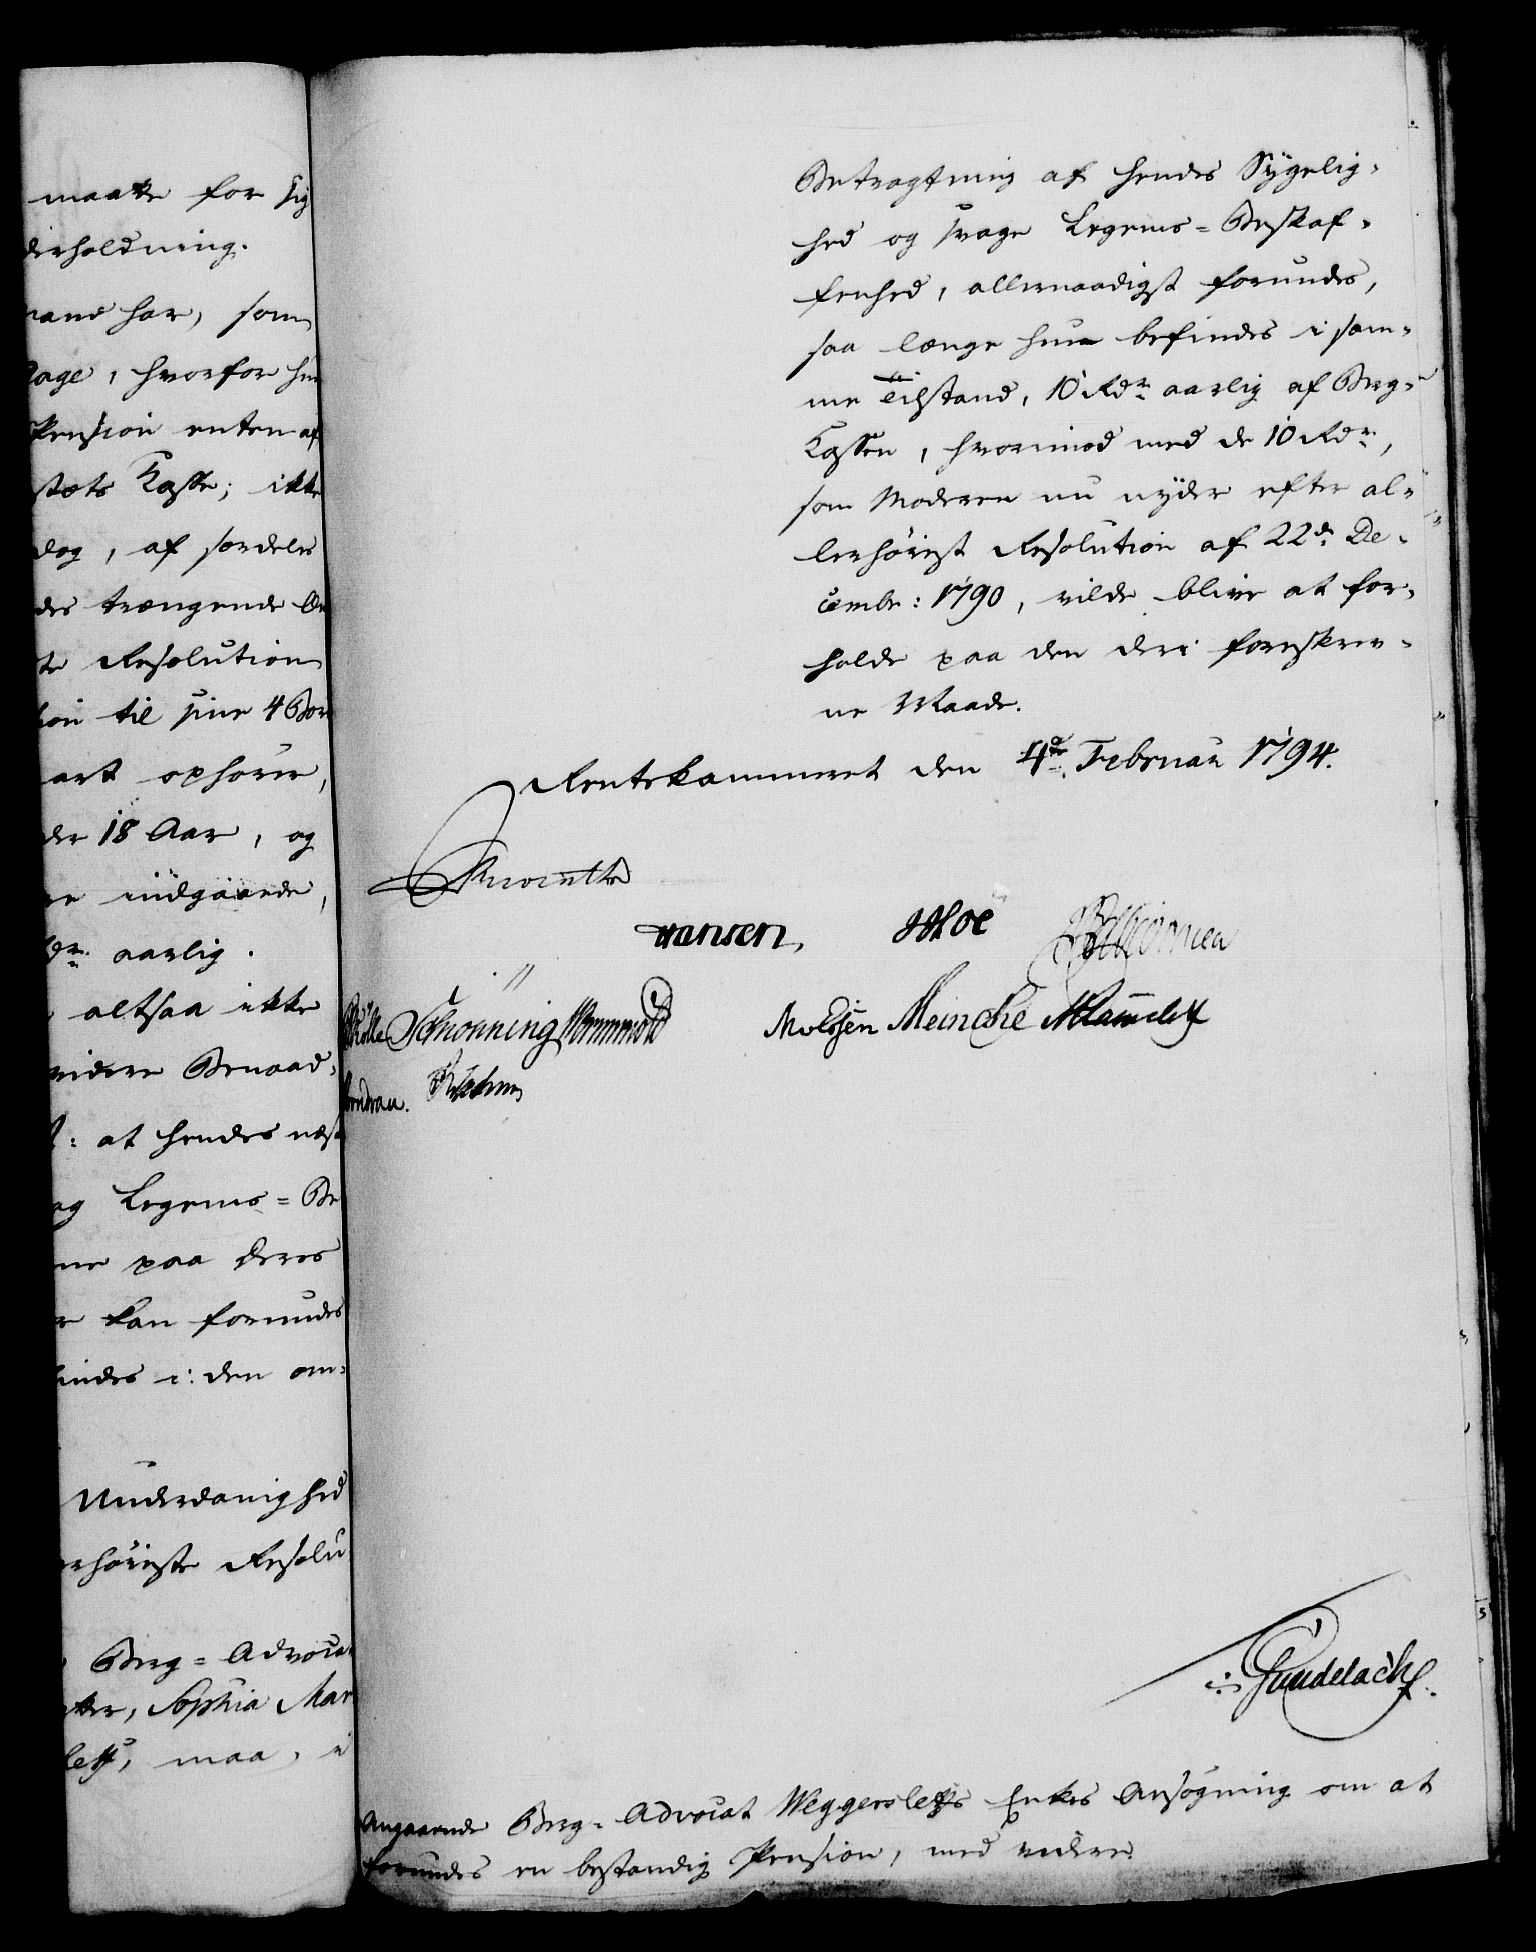 maatte for sig
derholdning.
mand har, som
dage, hvorfor hun
Pension enten af
stæts Casse; ikke
dog, af særdeles
des trængende
te Resolution
sion til sine 4 Børn
art ophører,
der 18 Aar, og
re indgaaende,
aarlig.
altsaa ikke
videre Benaad,
at hendes næst
og Legems=Be
ne paa deres
kan forundes
findes i: den om=
Underdanighed
erhøieste Resolu
Berg=Advocat
atter, Sophia Mar
leff, maa, i
Betragtning af hendes Sÿgelig,
hed og svage Legems=Beskaf,
fenhed, allernaadigst forundes,
saa længe hun befindes i sam,
me Tilstand, 10 Rdr aarlig af Berg=
Cassen, hvorimod med de 10 Rdr,
som Moderen nu nÿder efter al=
lerhøiest Resolution af 22de De,
cembr: 1790, vilde blive at for,
holde paa den deri foreskrev,
ne Maade.
Rentekammeret den 4de Februar 1794.
Hansen, Hoë
Schionning Wormskiold Moldsen Meincke
Gundelach
Angaaende Berg=Advocat Weggersleffs Enkes Ansøgning om at
forundes en bestandig Pension, med videre.